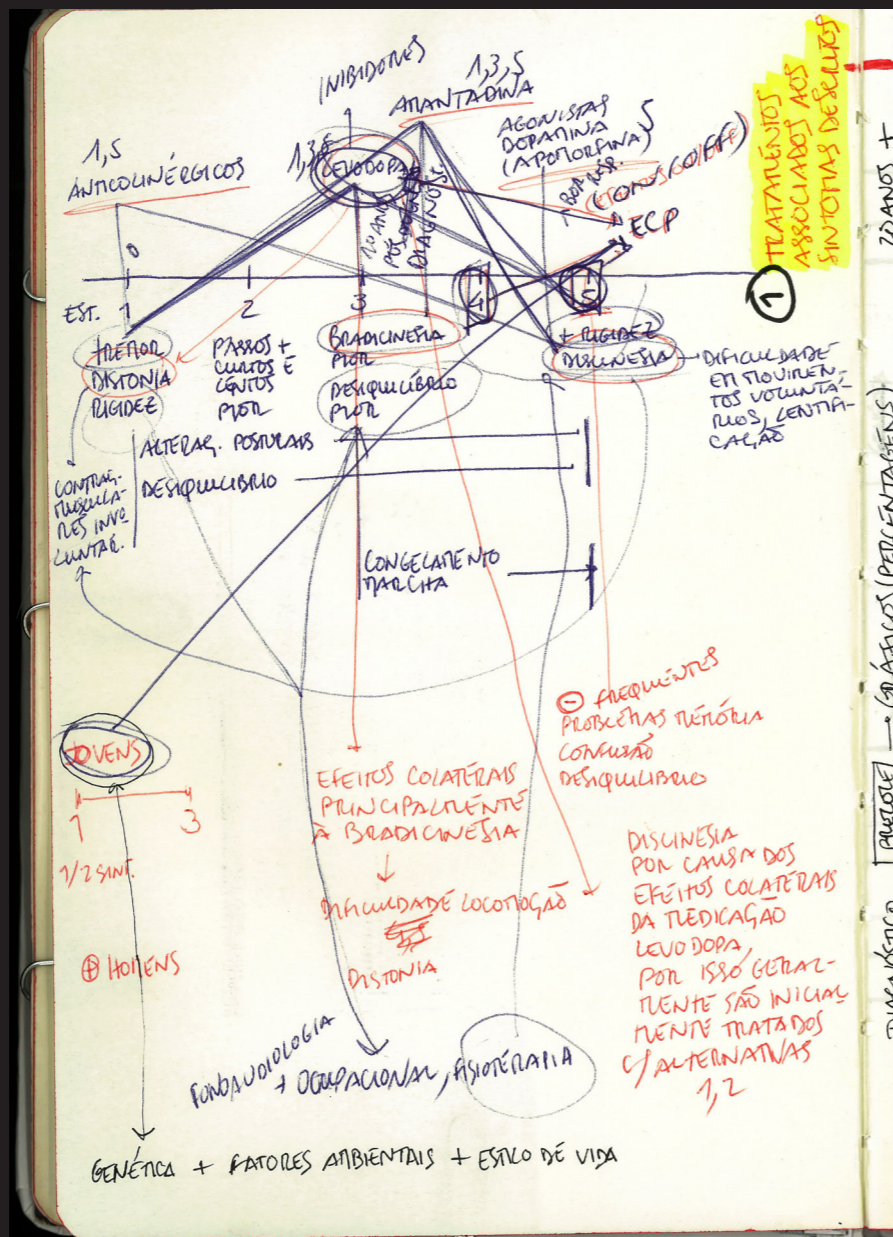 INIBIDORES
1,3,5
AMANTADINA
1,5
ANTICOLINÉRGICOS
LEVODOPA
AGONISTAS
DOPAMINA
(APOMORFINA)
5
(ON/OFF)
ECP
TRATAMENTOS
ASSOCIADOS AOS
SINTOMAS DESCRITOS
1
20 ANOS +
0
EST. 1
2
3
4
5
+TREMOR
DISTONIA
RIGIDEZ
PASSOS +
CURTOS E
LENTOS
PIOR
BRADICINESIA
PIOR
DESIQUILÍBRIO
PIOR
+ RIGIDEZ
DISCINESIA
DIFICULDADE
EM MOVIMEN-
TOS VOLUNTÁ-
RIOS, LENTIFI-
CAÇÃO
ALTERAÇ. POSTURAIS
DESIQUILIBRIO
CONTRAÇ.
MUSCULA-
RES INVO
LUNTAR.
CONGELAMENTO
MARCHA
⊖ FREQUENTES
PROBLEMAS MEMÓRIA
CONFUSÃO
DESIQUILIBRIO
JOVENS
1 3
1/2 SINT.
⊕ HOMENS
EFEITOS COLATERAIS
PRINCIPALMENTE
À BRADICINESIA
DIFICULDADE LOCOMOÇÃO
DISTONIA
DISCINESIA
POR CAUSA DOS
EFEITOS COLATERAIS
DA MEDICAÇÃO
LEVODOPA,
POR ISSO GERAL-
MENTE SÃO INICIAL
MENTE TRATADOS
C/ ALTERNATIVAS
1,2
FONOAUDIOLOGIA
+ OCUPACIONAL, FISIOTERAPIA
GENÉTICA + FATORES AMBIENTAIS + ESTILO DE VIDA
GRÁFICOS (PERCENTAGENS)
DIAGNÓSTICO